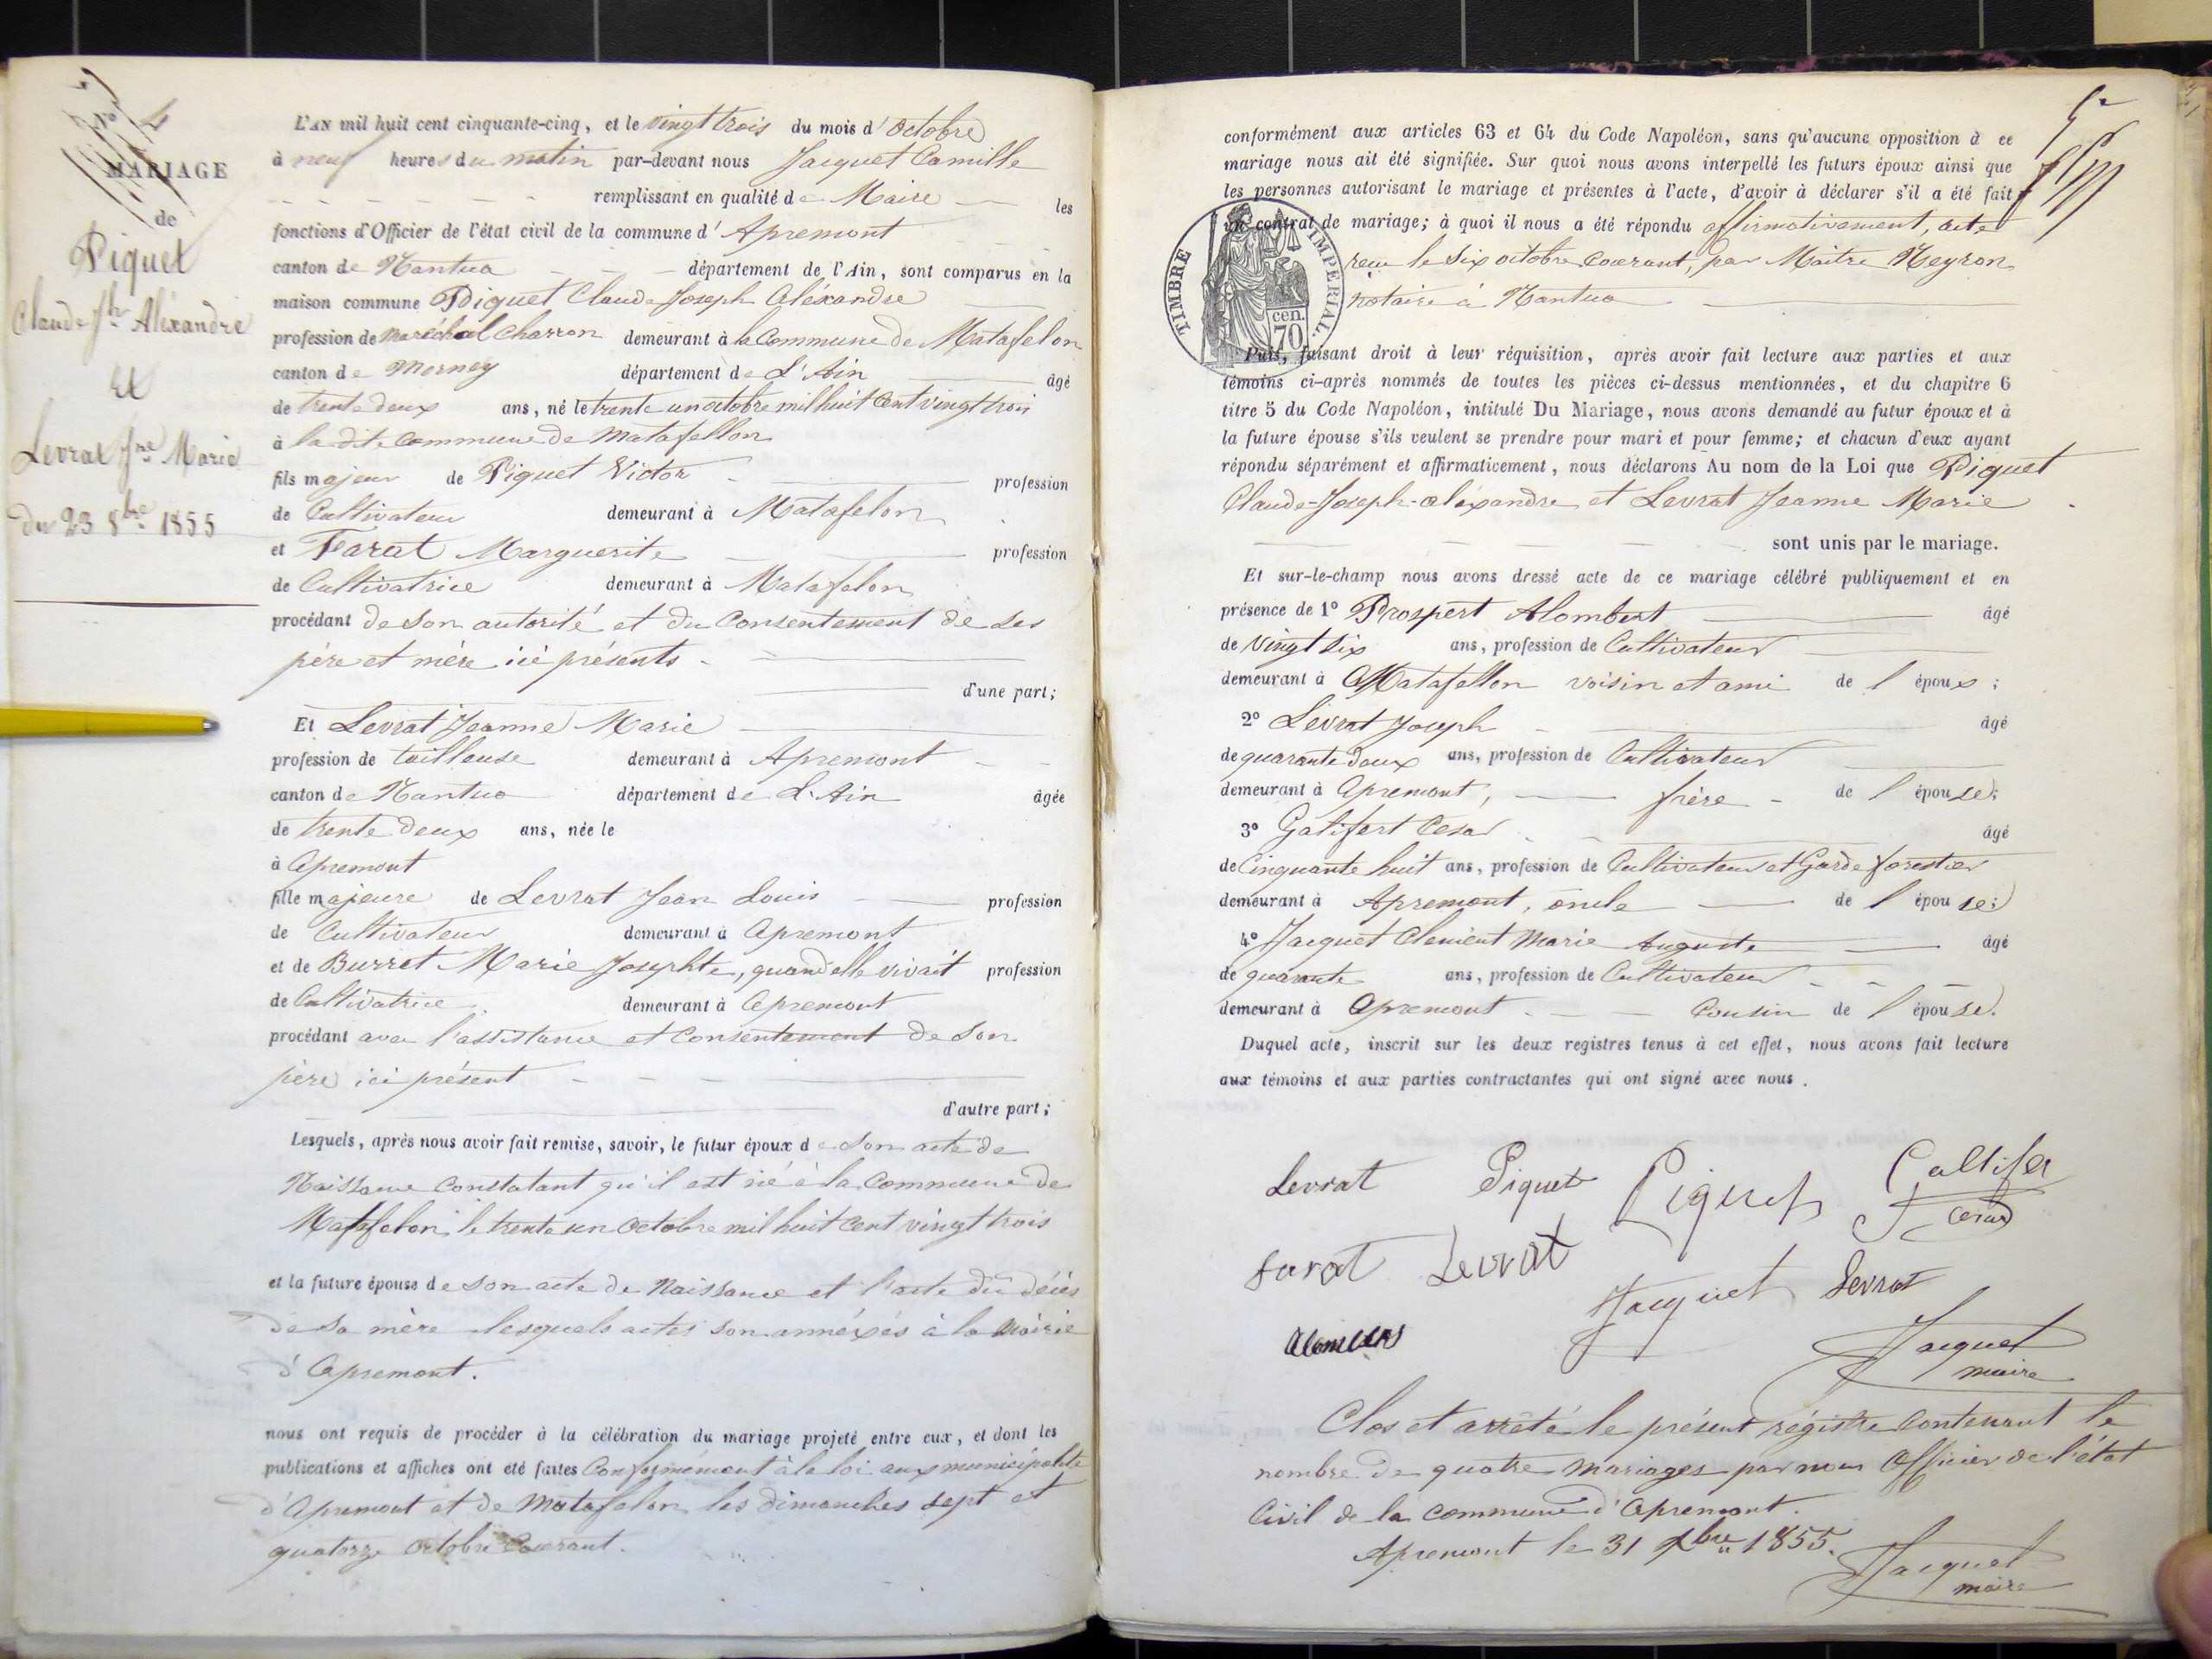 N° 4
MARIAGE
de
Piquet
Claude Jh Aléxandre
et
Levrat Jne Marie
du 23 8bre 1855
L'AN mil huit cent cinquante-cinq, et le vingt trois du mois d'octobre
à neuf heures du matin par-devant nous Jacquet Camille
remplissant en qualité de Maire les
fonctions d'Officier de l'état civil de la commune d'Apremont
canton de Nantua département de l'Ain, sont comparus en la
maison commune Piquet Claude Joseph Aléxandre
profession de maréchal charron demeurant à la Commune de Matafelon
canton de département de L'Ain âgé
de trente deux ans, né le trente un octobre mil huit Cent vingt trois
à la dite commune de Matafellon
fils majeur de Piquet Victor profession
de Cultivateur demeurant à Matafelon
et Farat Marguerite profession
de Cultivatrice demeurant à Matafelon
procédant de son autorité et du Consentement de ses
père et mère ici présents.
d'une part;
Et Levrat Jeanne Marie
profession de tailleuse demeurant à Apremont
canton de Nantua département de L'Ain âgée
de trente deux ans, née le
à Apremont
fille majeure de Levrat Jean Louis profession
de Cultivateur demeurant à Apremont
et de Burret Marie Josephte, quand elle vivait profession
de Cultivatrice demeurant à Apremont
procédant avec l'assistance et Consentement de son
père ici présent
d'autre part;
Lesquels, après nous avoir fait remise, savoir, le futur époux de son acte de
Naissance Constatant qu'il est né à la Commune de
Matafelon le trente un octobre mil huit cent vingt trois
et la future épouse de son acte de Naissance et l'acte du décès
de sa mère lesquels actes son annéxés à la Mairie
d'Apremont.
nous ont requis de procéder à la célébration du mariage projeté entre eux, et dont les
publications et affiches ont été faites Conformément à la loi aux municipalité
d'Apremont et de Matafelon les dimanches sept et
quatorze octobre Courant.
5e
conformément aux articles 63 et 64 du Code Napoléon, sans qu'aucune opposition à ce
mariage nous ait été signifiée. Sur quoi nous avons interpellé les futurs époux ainsi que
les personnes autorisant le mariage et présentes à l'acte, d'avoir à déclarer s'il a été fait
un contrat de mariage; à quoi il nous a été répondu affirmativement, acte
reçu le Six octobre Courant, par Maitre Neyron
notaire à Nantua
TIMBRE IMPERIAL.
70 cen.
Puis, faisant droit à leur réquisition, après avoir fait lecture aux parties et aux
témoins ci-après nommés de toutes les pièces ci-dessus mentionnées, et du chapitre 6
titre 5 du Code Napoléon, intitulé Du Mariage, nous avons demandé au futur époux et à
la future épouse s'ils veulent se prendre pour mari et pour femme; et chacun d'eux ayant
répondu séparément et affirmativement, nous déclarons Au nom de la Loi que Piquet
Claude-Joseph-aléxandre et Levrat Jeanne Marie
sont unis par le mariage.
Et sur-le-champ nous avons dressé acte de ce mariage célébré publiquement et en
présence de 1° Prospert Alombert âgé
de vingt six ans, profession de Cultivateur
demeurant à Matafellon voisin et ami de l'époux;
2° Levrat Joseph âgé
de quarante deux ans, profession de Cultivateur
demeurant à Apremont, frère de l'épouse;
3° Galifert César âgé
de Cinquante huit ans, profession de Cultivateur et Garde forestier
demeurant à Apremont, oncle de l'épouse;
4° Jacquet Clement Marie Auguste âgé
de quarante ans, profession de Cultivateur
demeurant à Apremont Cousin de l'épouse.
Duquel acte, inscrit sur les deux registres tenus à cet effet, nous avons fait lecture
aux témoins et aux parties contractantes qui ont signé avec nous.
Levrat Piquet Piquet
farat Levrat
Jacquet Levrat
Jacquet
maire
Clos et arrêté le présent régistre Contenant le
nombre de quatre mariages par nous Officier de l'état
Civil de la commune d'Apremont.
Apremont le 31 Xbre 1855.
Jacquet
maire